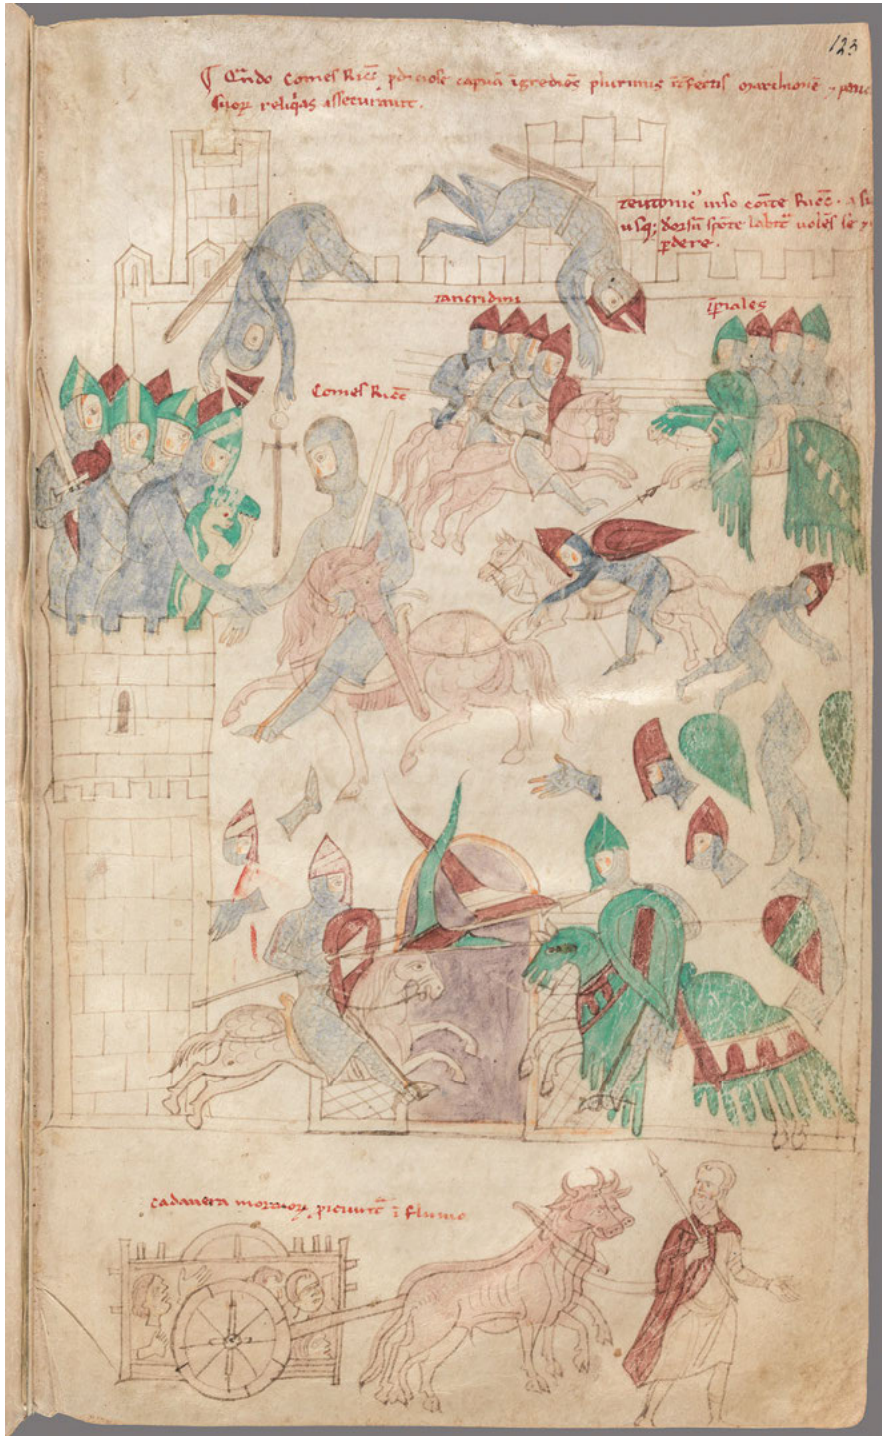 123
¶ Qn̄do Comes Ricc̄ pdiciose capuā īgrediēs plurimis īt̄fectis
suoꝝ reliq̄as assecurauit.
teutonic᷒ uiso cōite Ricc̄. a
usq; dorsū spōte labit̄ uolēs se
pdere.
tancridini
īpiales
Comes Ricc̄
cadauera mortuoꝝ piciunt̄ ī flumīe